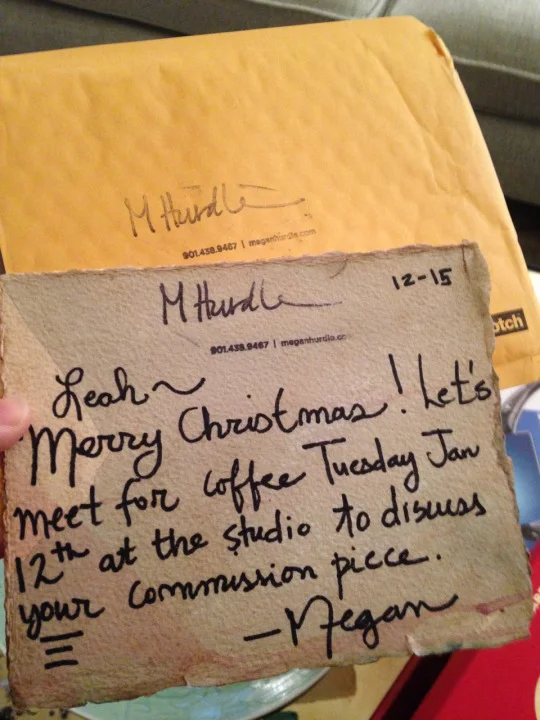 M Hurdle
901.438.9467 | meganhurdle.com
M Hurdle
12-15
901.438.9467 | meganhurdle.co
Leah~
Merry Christmas! Let's
meet for coffee Tuesday Jan
12th at the studio to discuss
your commission piece.
—Megan
otch